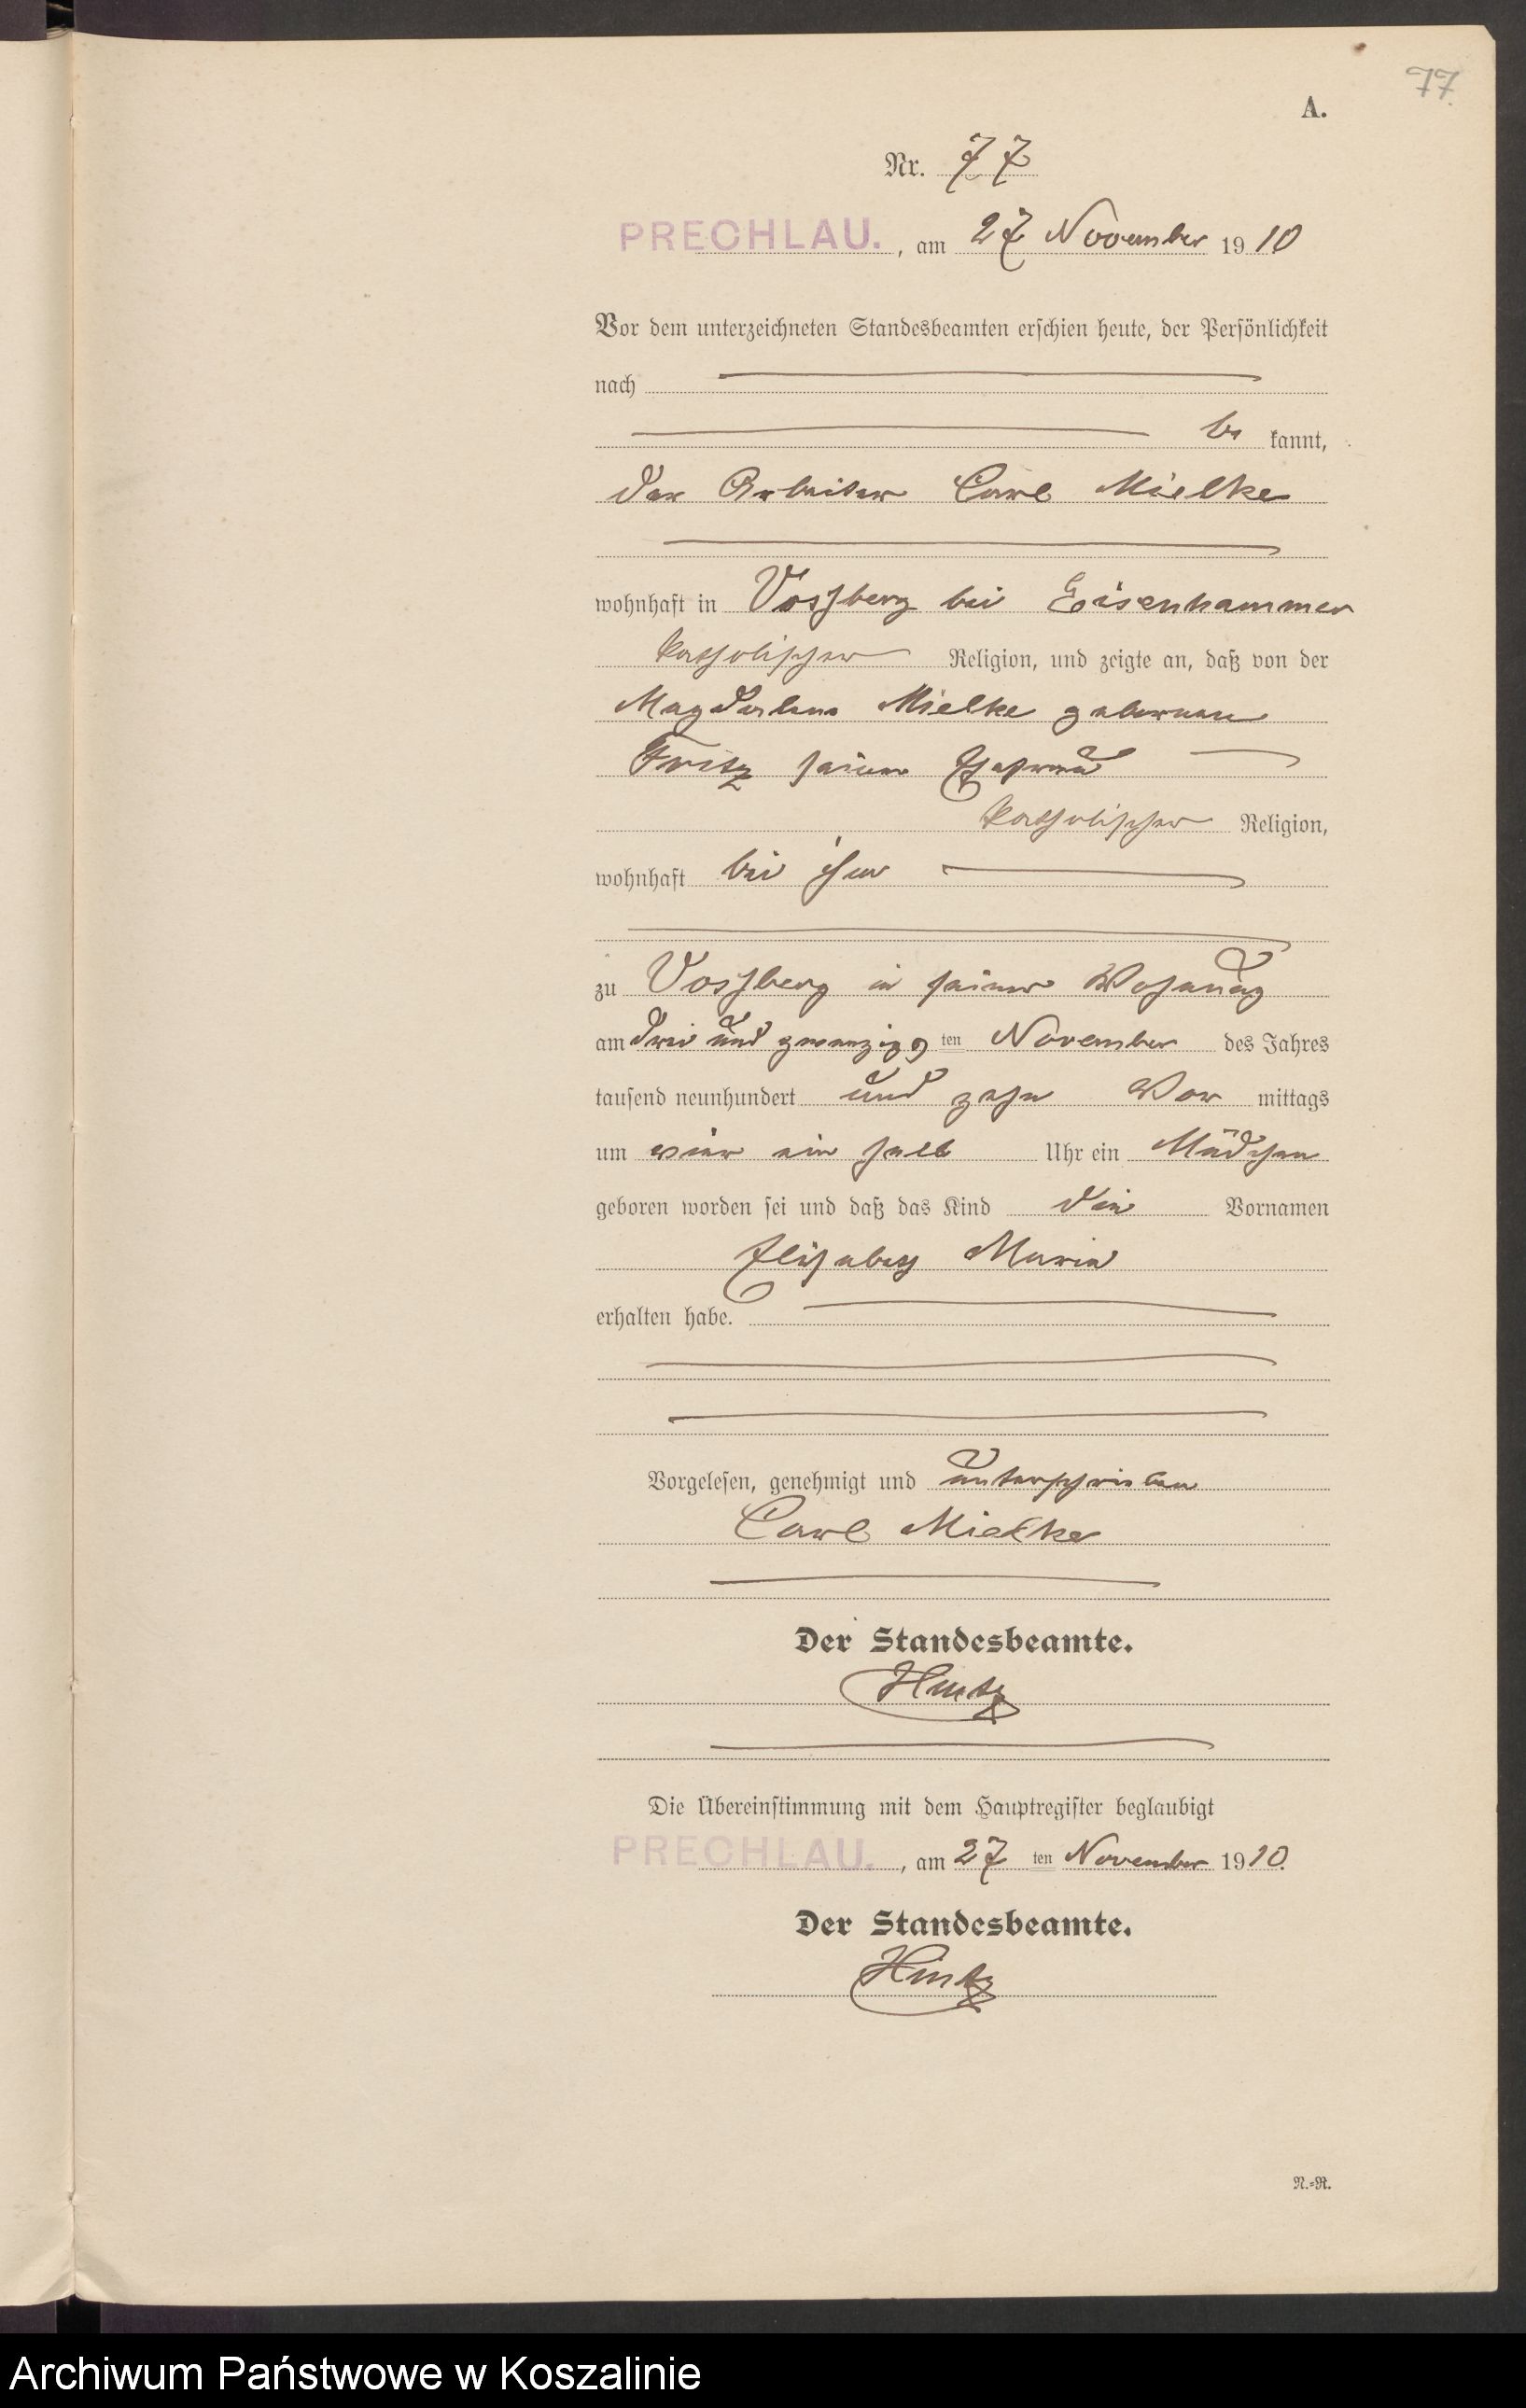 77.
A.
Nr. 77
PRECHLAU., am 27 November 1910
Vor dem unterzeichneten Standesbeamten erschien heute, der Persönlichkeit
nach
be kannt,
der Arbeiter Carl Mielke
wohnhaft in Vossberg bei Eisenhammer
katholischer Religion, und zeigte an, daß von der
Magdalena Mielke geborenen
Fritz seiner Ehefrau
katholischer Religion,
wohnhaft bei ihm
zu Vossberg in seiner Wohnung
am drei und zwanzigsten November des Jahres
tausend neunhundert und zehn Vor mittags
um vier ein halb Uhr ein Mädchen
geboren worden sei und daß das Kind die Vornamen
Elisabeth Maria
erhalten habe.
Vorgelesen, genehmigt und unterschrieben
Carl Mielke
Der Standesbeamte.
Hintz
Die Übereinstimmung mit dem Hauptregister beglaubigt
PRECHLAU., am 27 ten November 1910.
Der Standesbeamte.
Hintz
N.=R.
Archiwum Państwowe w Koszalinie